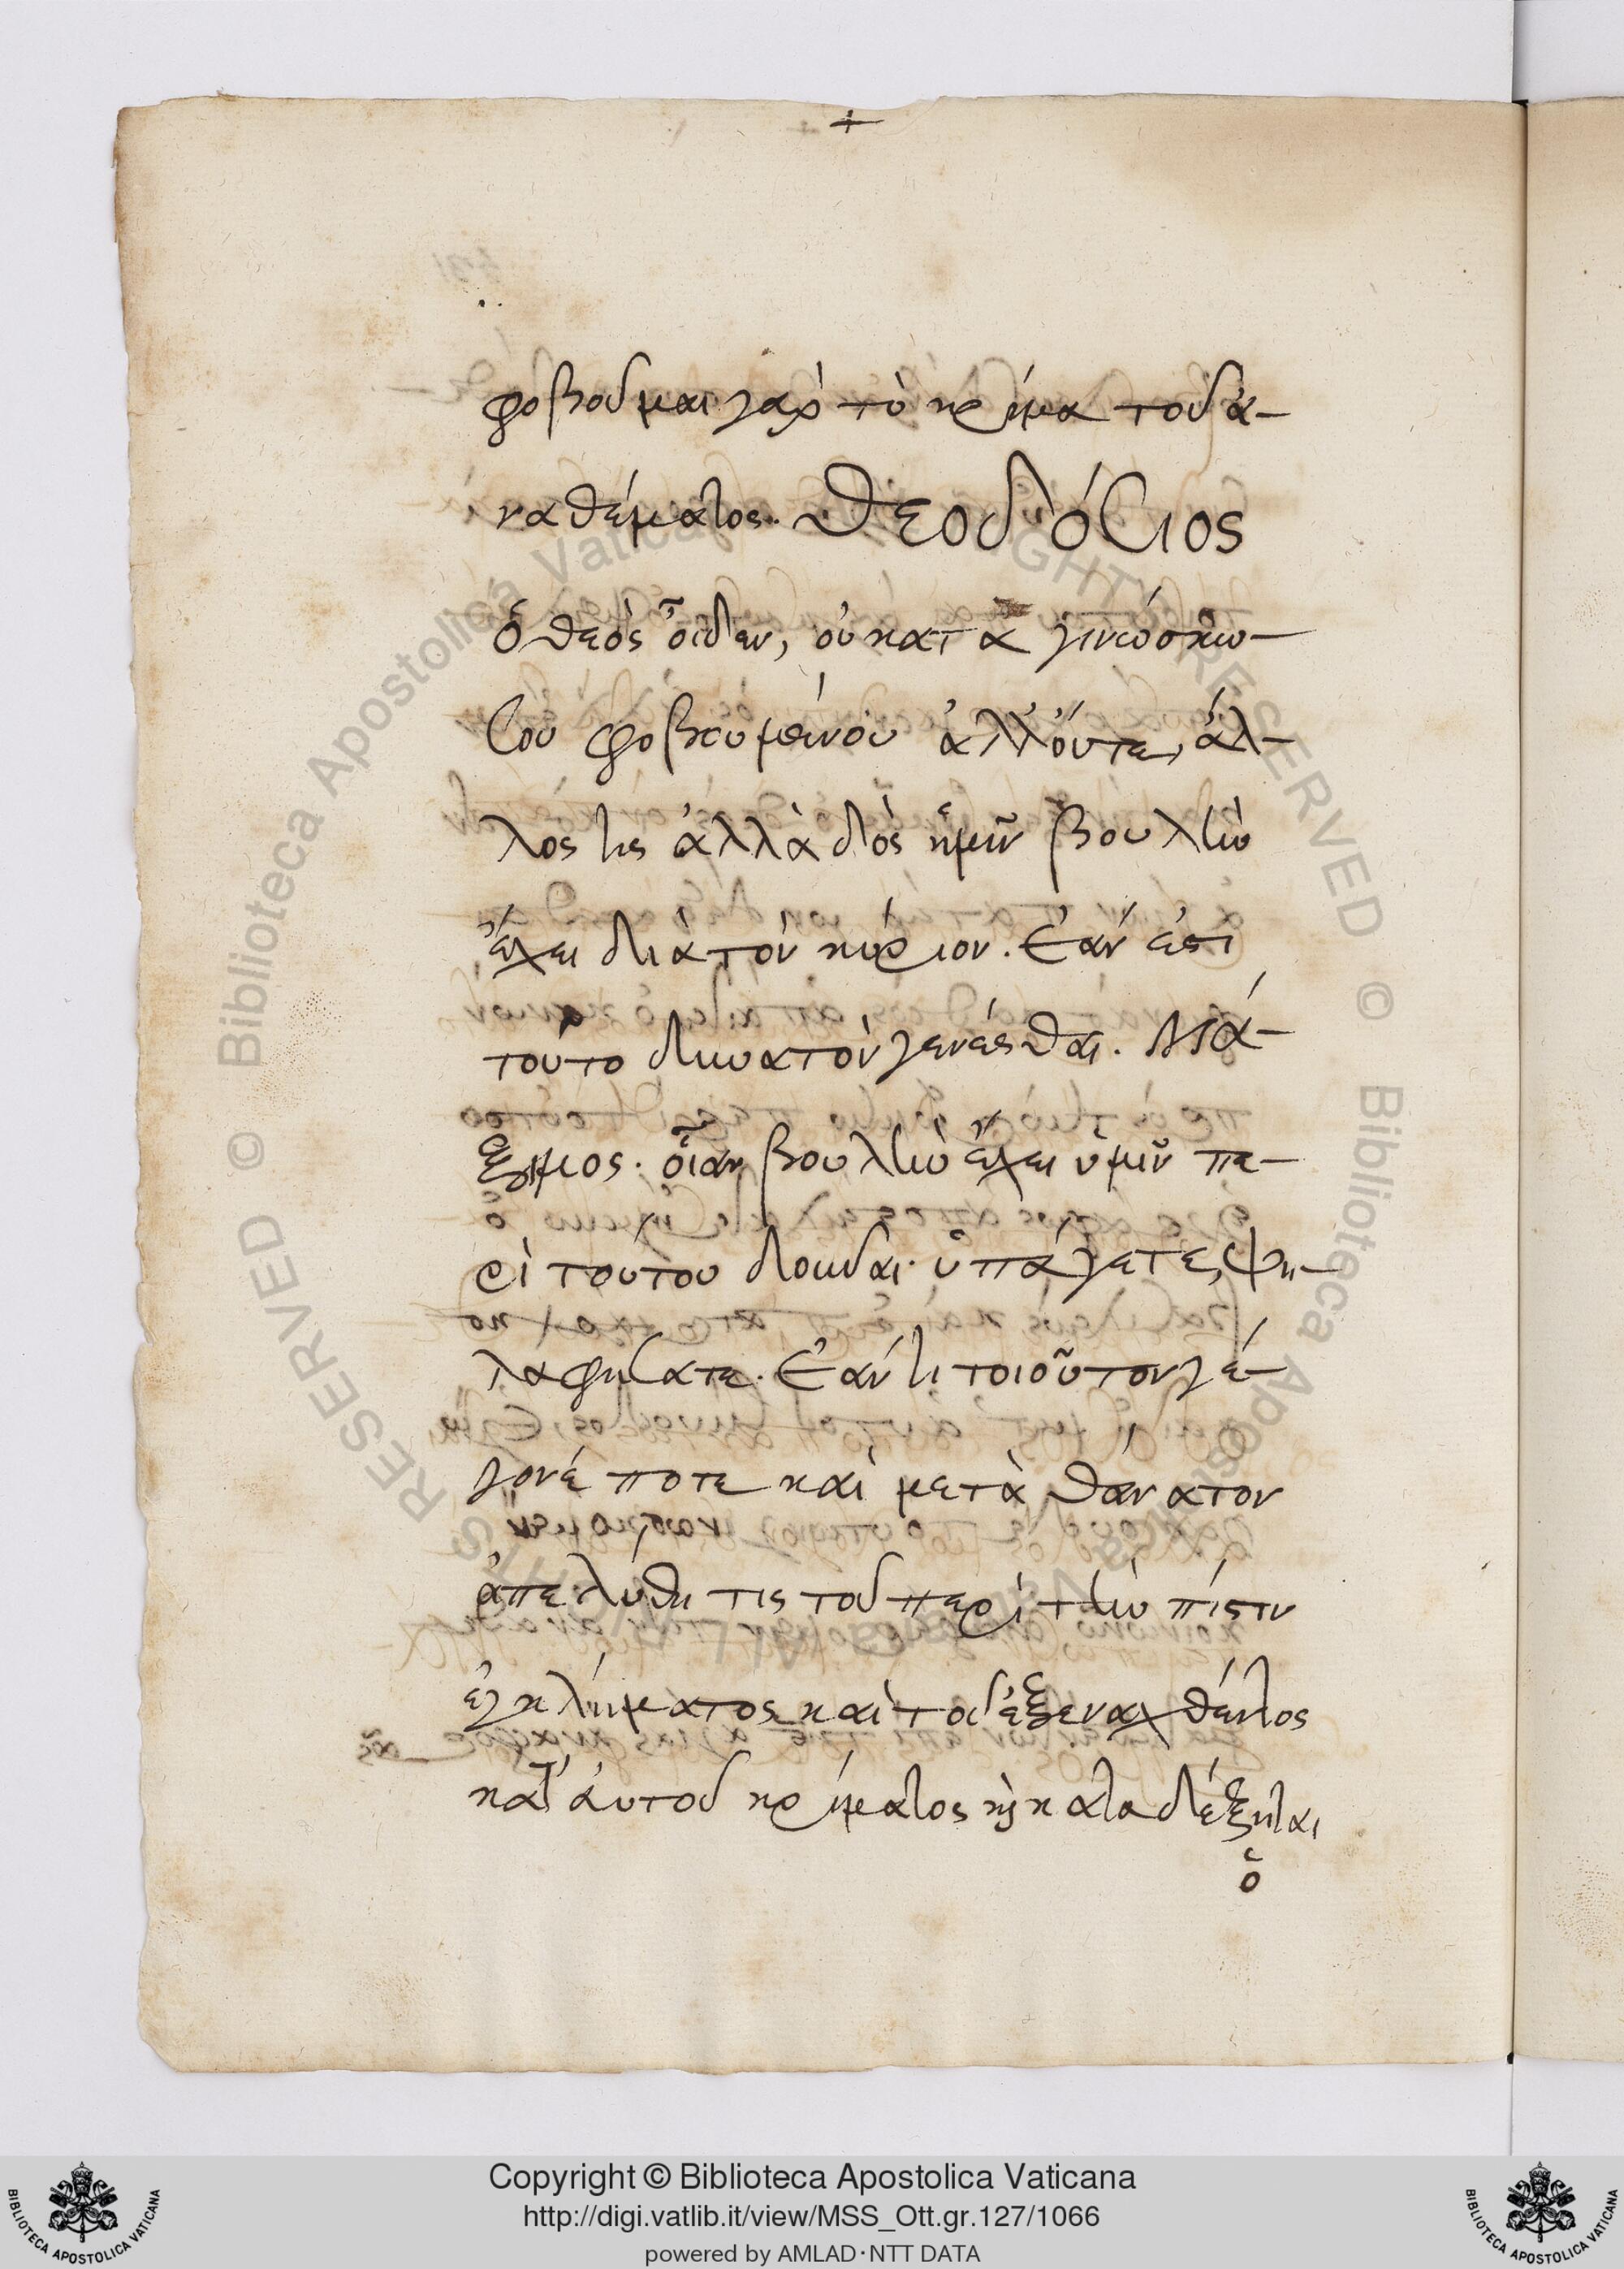 +
φοβοῦμαι γὰρ τὸ κρίμα τοῦ ἀ-
ναθέματος. Θεοδόσιος
ὁ θεὸς οἶδεν, οὐ καταγινώσκω
σου φοβουμένου ἀλλ' οὔτε, ἄλ-
λος τις ἀλλὰ δὸς ἡμῖν βουλὴν
ἔχει διὰ τὸν κύριον. Ἐάν ἐστι
τοῦτο δυνατὸν γενέσθαι. Μά-
ξιμος. οἵαν βουλὴν ἔχει ὑμῖν πε-
ρὶ τούτου δοῦναι· ὑπάγετε, ψη-
λαφήσατε. Ἐάν τι τοιοῦτον γέ-
γονέ ποτε καὶ μετὰ θάνατον
ἀπελύθη τις τοῦ περὶ τὴν πίστιν
ἐγκλήματος καὶ τοῦ ἐξεναχθέντος
κατ' αὐτοῦ κρίματος καὶ καταδέξηται
ὁ
© Biblioteca Apostolica Vaticana
ALL RIGHTS RESERVED
Copyright © Biblioteca Apostolica Vaticana
http://digi.vatlib.it/view/MSS_Ott.gr.127/1066
powered by AMLAD·NTT DATA
BIBLIOTECA APOSTOLICA VATICANA
BIBLIOTECA APOSTOLICA VATICANA